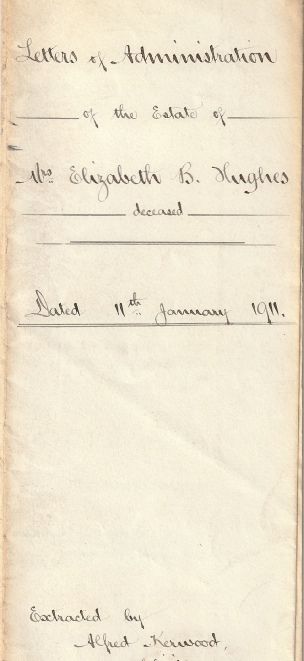 Letters of Administration
of the Estate of
Mrs Elizabeth B. Hughes
deceased
Dated 11th January 1911.
Extracted by
Alfred Kerwood,